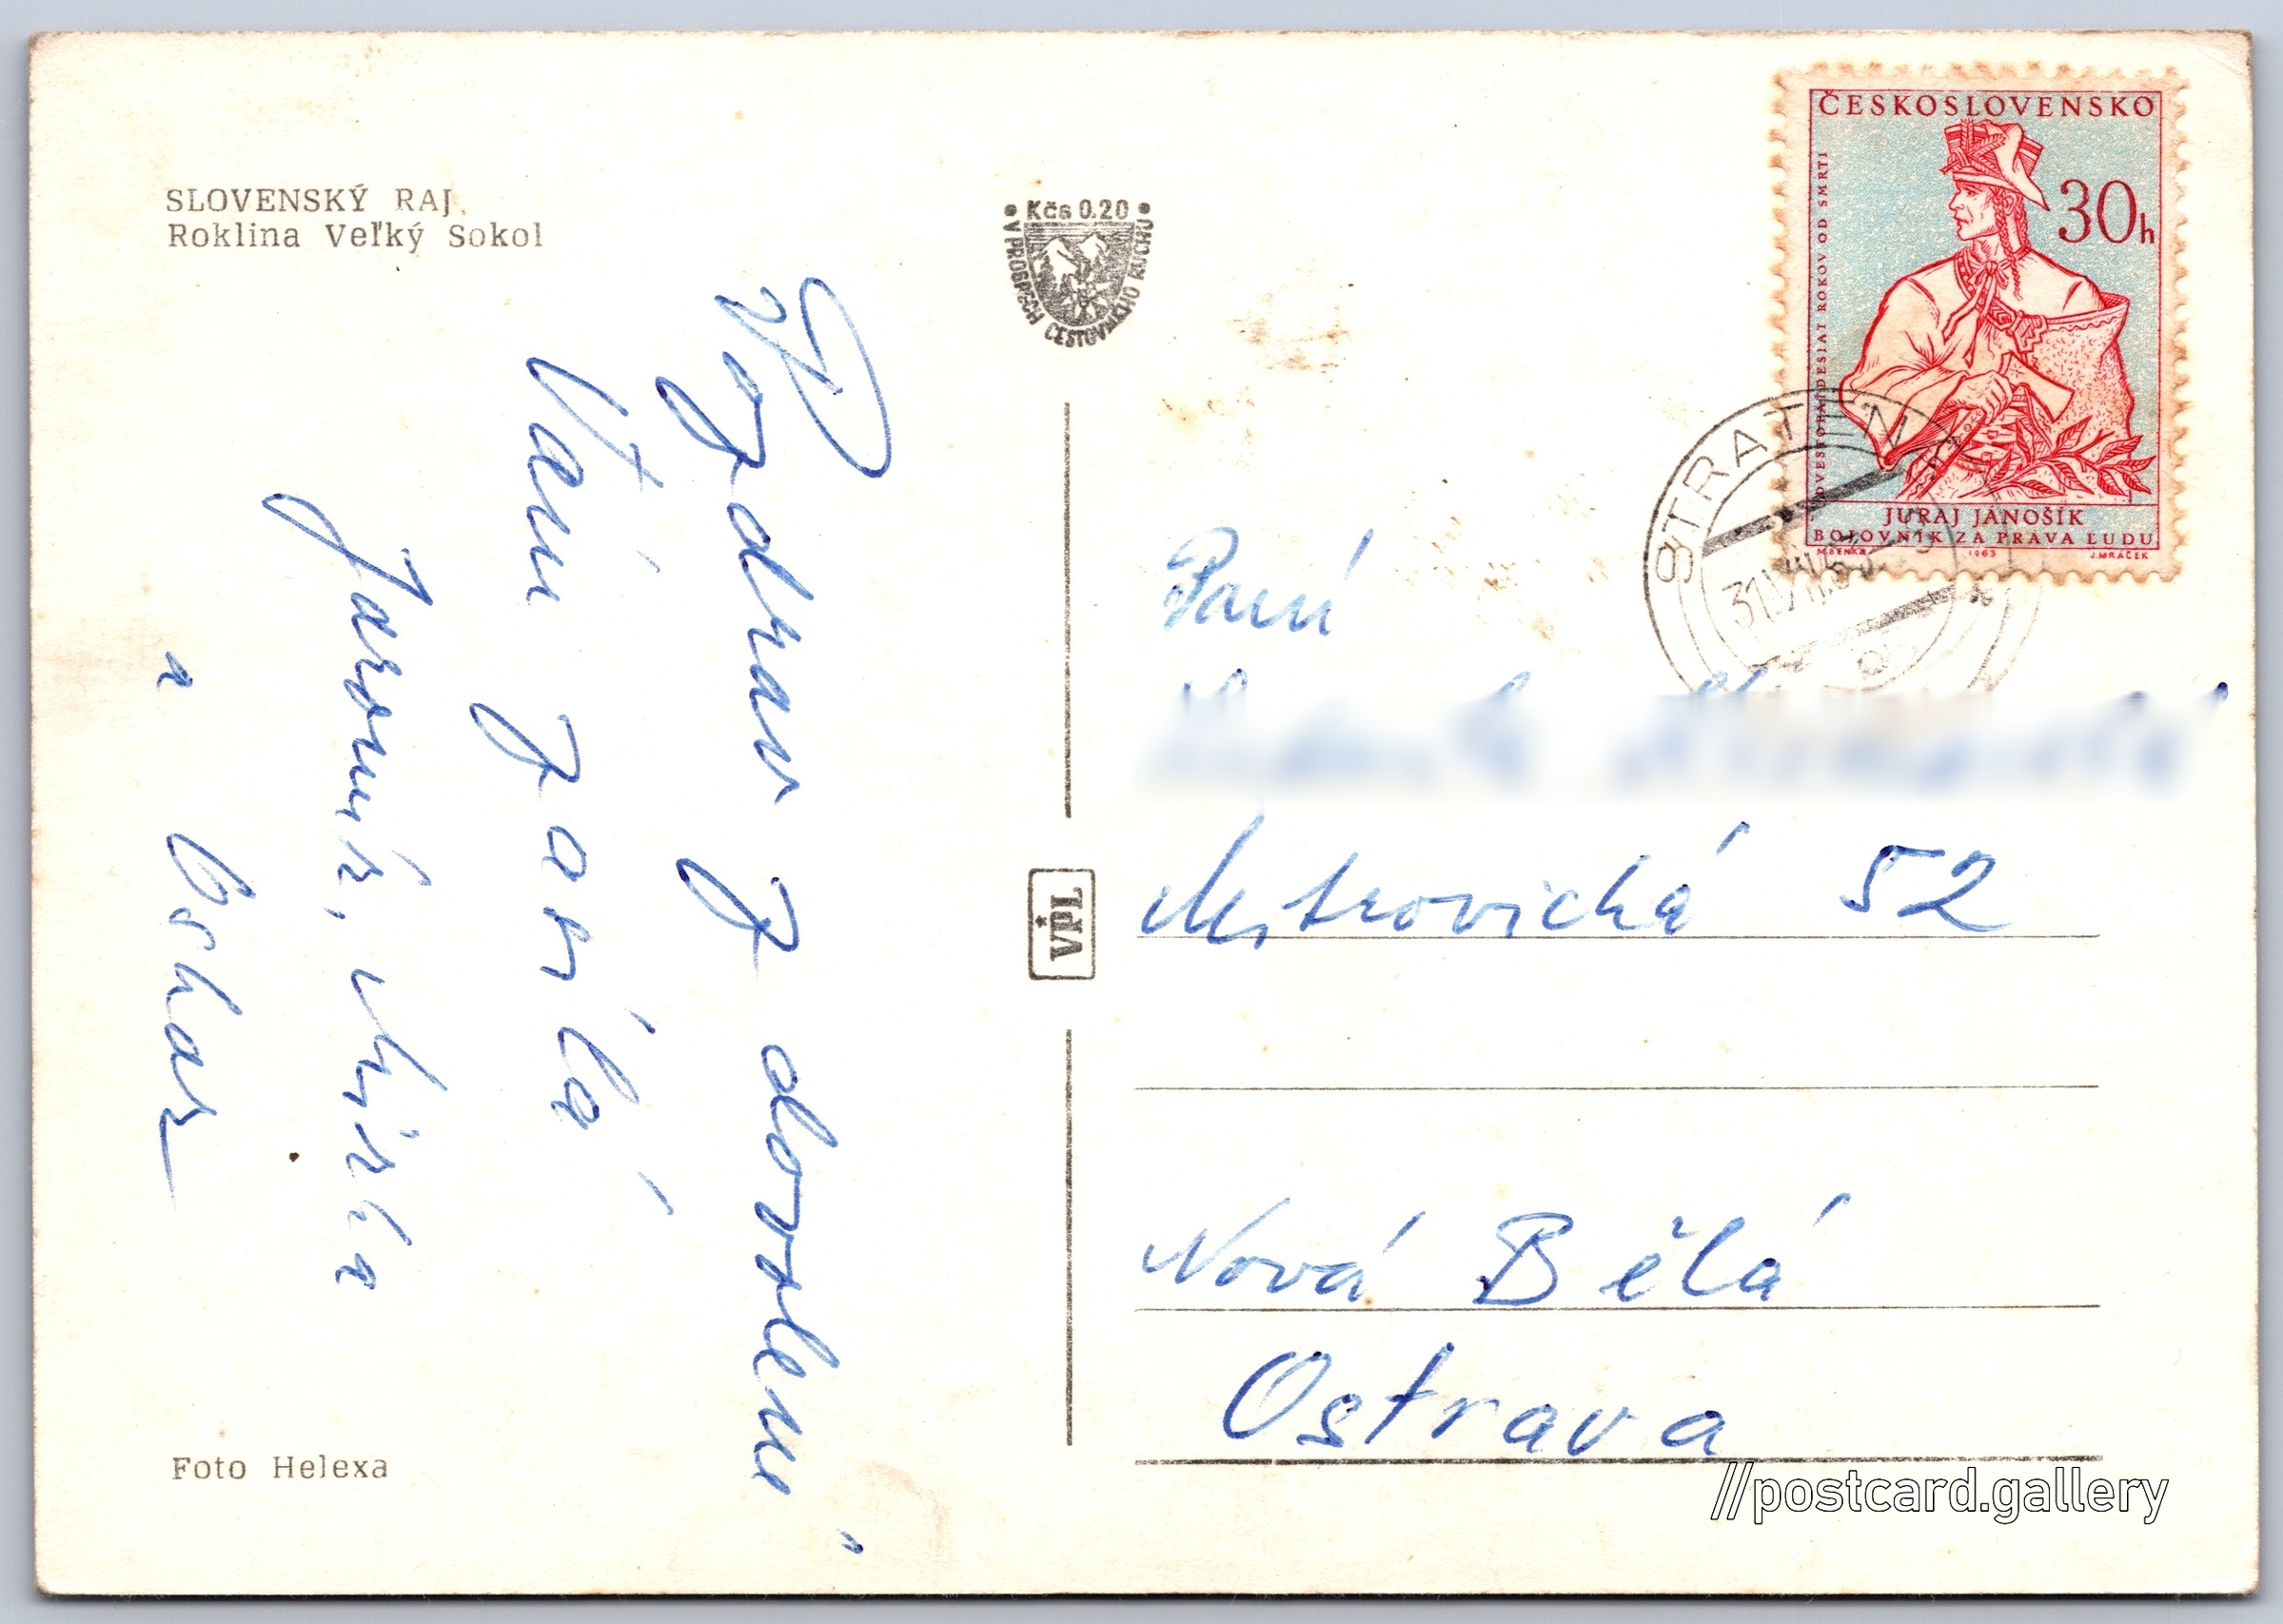 SLOVENSKÝ RAJ
Roklina Veľký Sokol
Pozdrav z dovolené
Vám zasílá
Jaromír, Mirka
a Oskar
Foto Helexa
• Kčs 0.20 •
V PROSPĚCH CESTOVNÍHO RUCHU
VTL
ČESKOSLOVENSKO
30h
DVESTOPÄŤDESIAT ROKOV OD SMRTI
JURAJ JÁNOŠÍK
BOJOVNÍK ZA PRÁVA ĽUDU
M.BENKA 1963 J.MRÁČEK
STRATENÁ
31.VII.
Paní
Mitrovická 52
Nová Bělá
Ostrava
//postcard.gallery